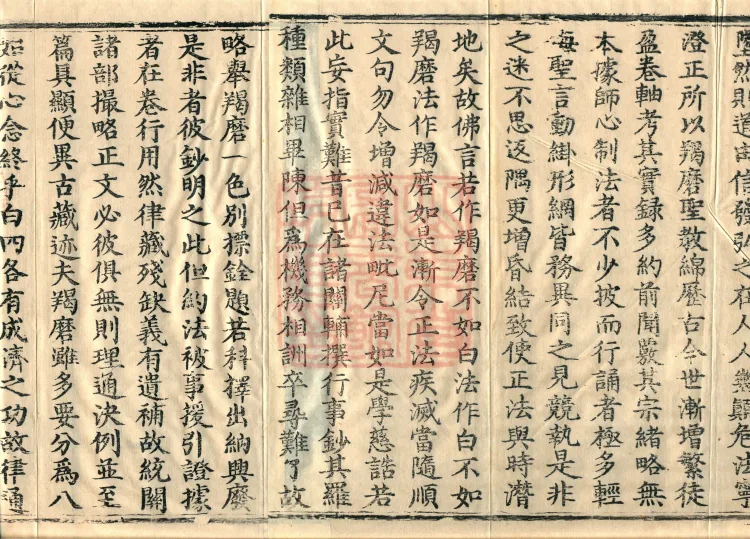 然則道由信發弘之在人人幾顛危法寧
澄正所以羯磨聖教綿歷古今世漸增繁徒
盈卷軸考其實録多約前聞覈其宗緒略無
本據師心制法者不少披而行誦者極多輕
侮聖言動掛形網皆務異同之見競執是非
之迷不思返隅更增昏結致使正法與時潛
地矣故佛言若作羯磨不如白法作白不如
羯磨法作羯磨如是漸令正法疾滅當隨順
文句勿令增減違法毗尼當如是學慈誥若
此妄指實難昔已在諸關輔撰行事鈔其羅
種類雜相畢陳但爲機務相訓卒尋難了故
略舉羯磨一色別標銓題若科擇出納興廢
是非者彼鈔明之此但約法被事援引證據
者在卷行用然律藏殘缺義有遺補故統關
諸部撮略正文必彼俱無則理通決例並至
篇具顯便異古藏迹夫羯磨雖多要分爲八
始從心念終乎白四各有成濟之功故律通